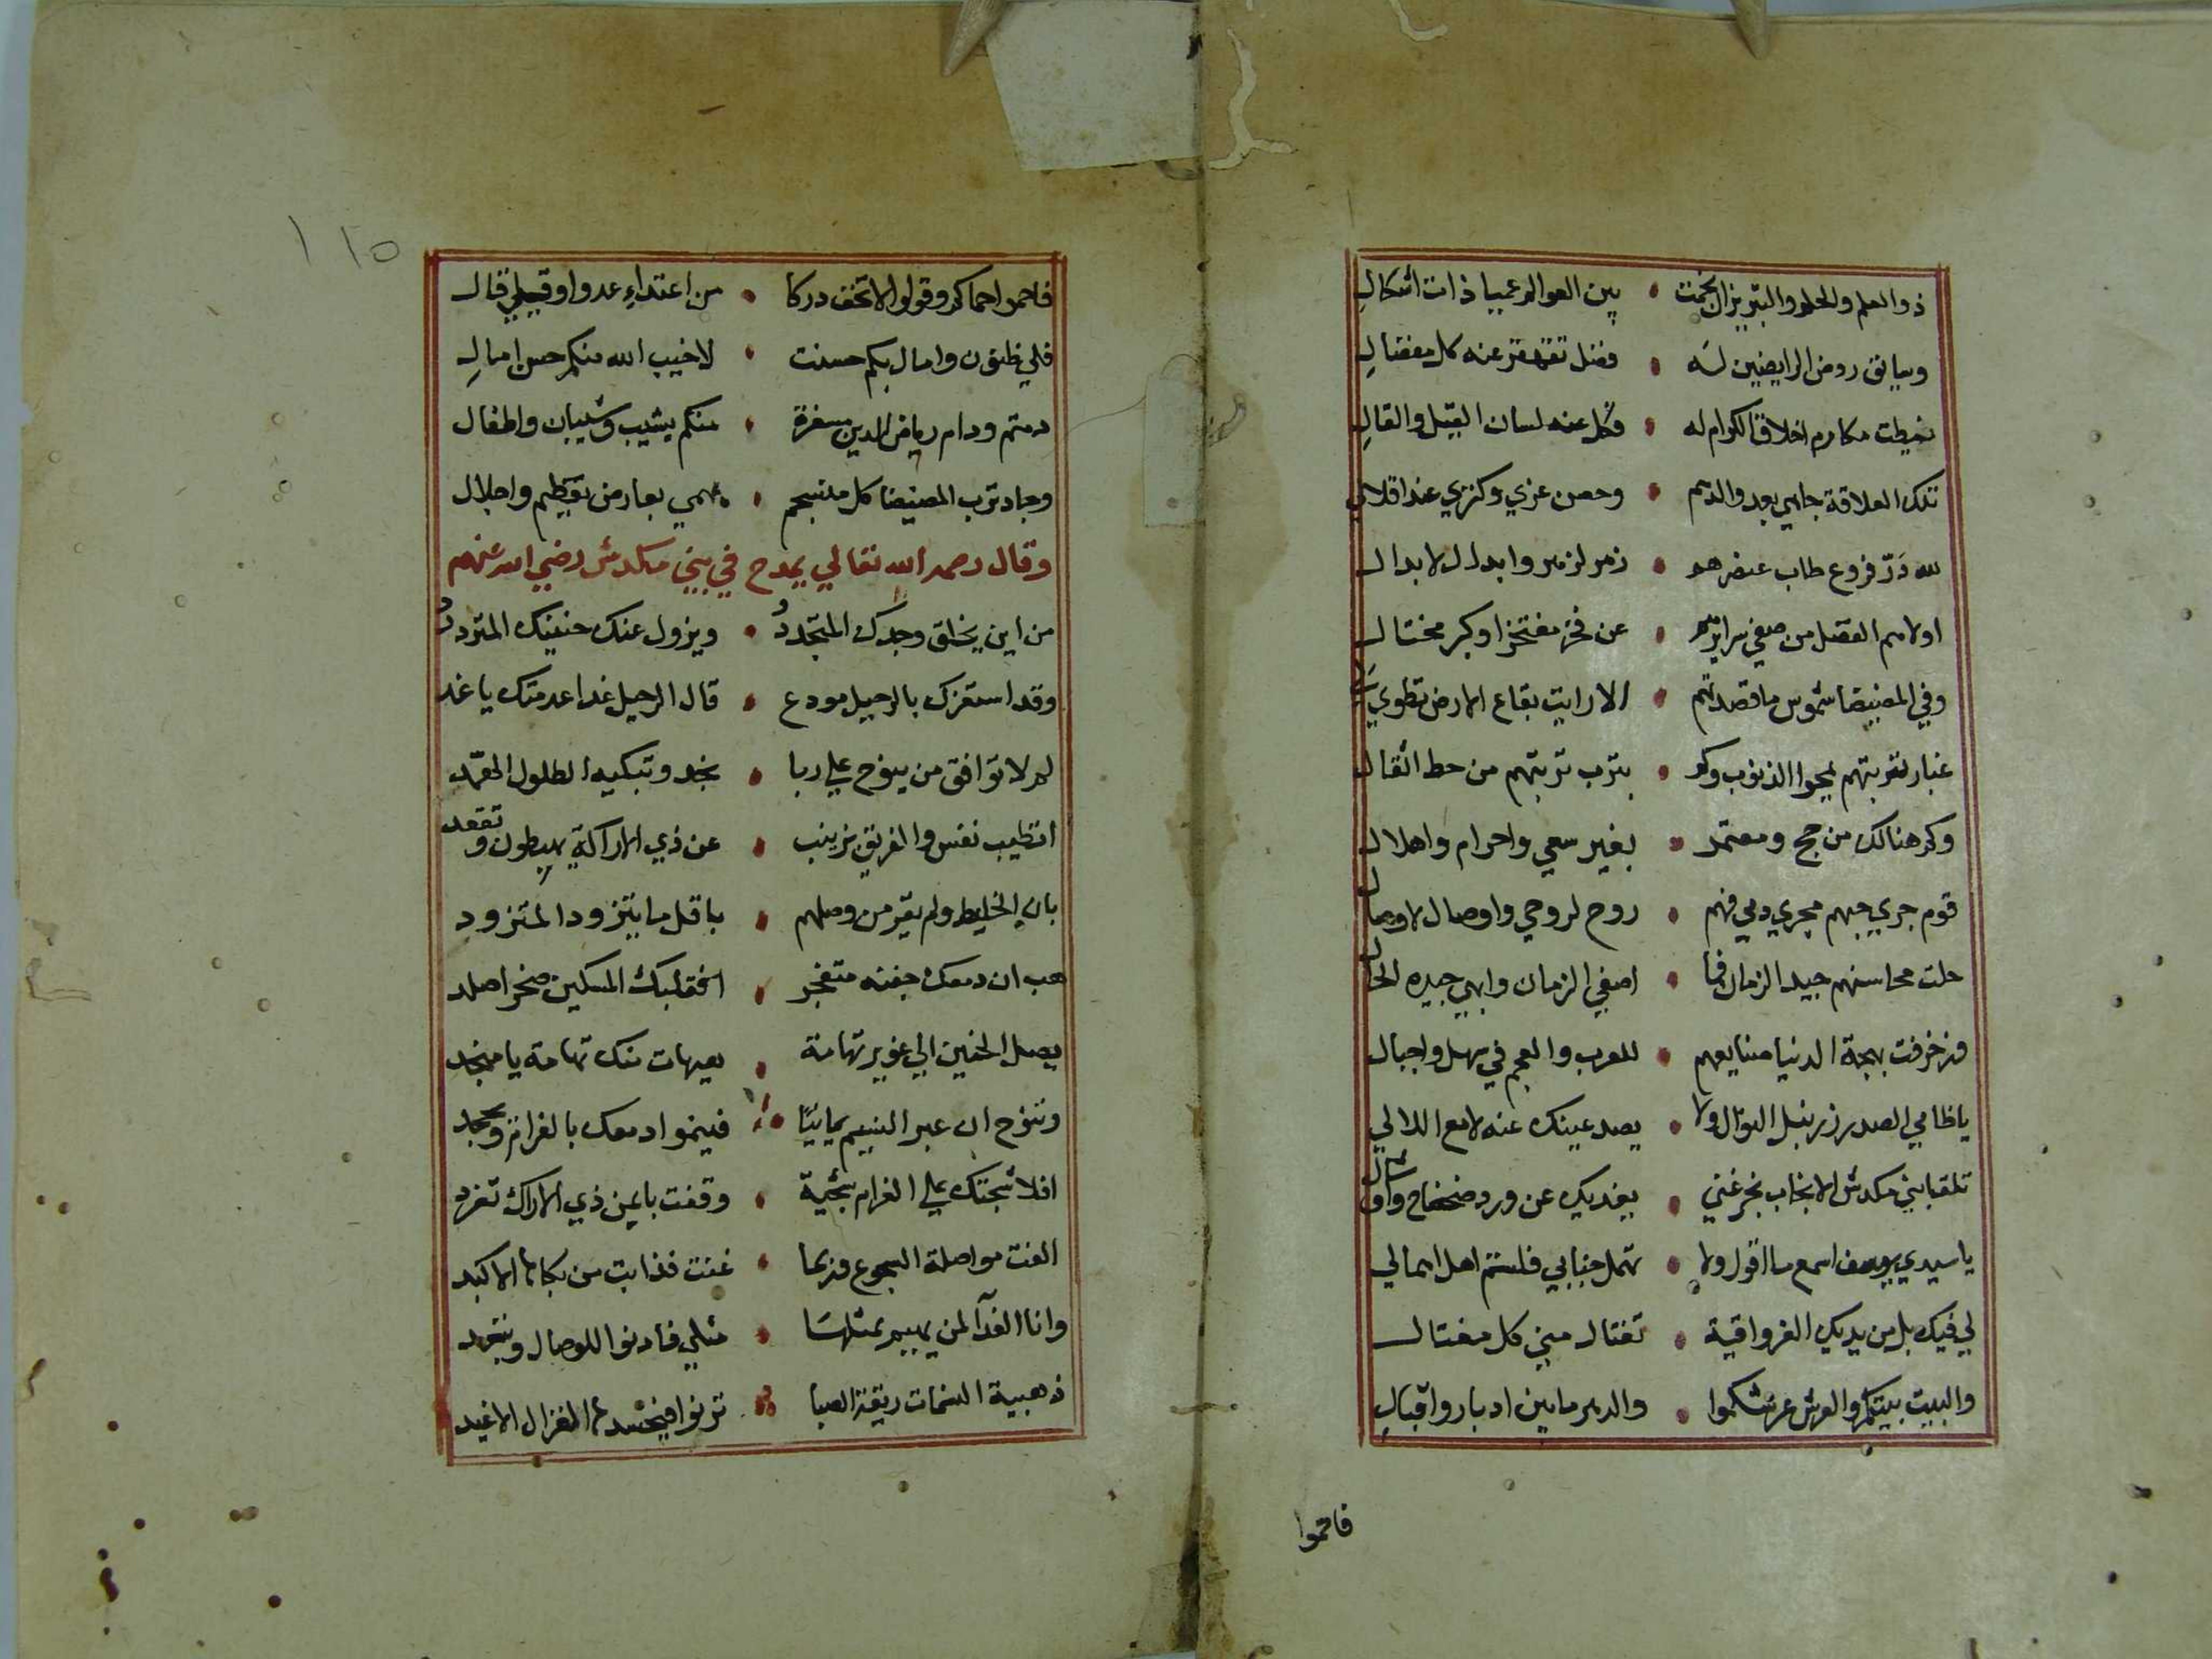 ذو العلم والحلم والتبريز ان نجمت • بين العوالم عميا ذات اشكال
وسابق روض الرايضين له • فضل تقهقر عنه كل مفضال
نيطت مكارم اخلاق الكرام له • فكل عنه لسان القيل والقال
تلك العلاقة جاهي بعد والدهم • وحصن عزي وكنزي عند اقلالي
لله در فروع طاب عنصرهم • زمر لزمر وابدال لابدال
اولاهم الفضل من صفي سرايرهم • عن فخر مفتخر او كبر مختال
وفي المضيضا شموس ما قصدتهم • الا رايت بقاع الارض تطوي لي
غبار تقربتهم يمحوا الذنوب وكم • بترب تربتهم من حط اثقال
وكم هنالك من حج ومعتمر • بغير سعي واحرام واهلال
قوم جري حبهم مجري دمي فهم • روح لروحي واوصال لاوصال
حلت محاسنهم جيد الزمان فما • اصفي الزمان وابهي جيده الحال
وزخرفت بهجة الدنيا صنايعهم • للعرب والعجم في سهل واجبال
يا ظامي الصدر زر نيل النوال ولا • يصد عينك عنه لامع اللالي
تلق بابني مكدش الانجاب بحر غني • يغنيك عن ورد ضحضاح واوشال
يا سيدي يوسف اسمع ما اقول ولا • تهمل جنابي فلستم اهل اهمالي
لي فيك بل من يديك الغر واقية • تغتال مني كل مغتال
والبيت بيتكم والعرش عرشكموا • والدهر ما بين ادبار واقبال
فاحموا
١١٥
فاحموا حماكم وقولوا لا تخف دركا • من اعتداء عدو او قيلي قال
فلي ظنون وامال بكم حسنت • لا خيب الله منكم حسن امال
دمتم ودام رياض الدين مسفرة • منكم بشيب وشبان واطفال
وجاد ترب المضيضا كل منسجم • يهمي بعارض تعظيم واجلال
وقال رحمه الله تعالي يمدح في بني مكدش رضي الله عنهم
من اين يخلق وجدك المتجدد • ويزول عنك حنينك المتردد
وقد استفزك بالرحيل مودع • قال الرحيل غدا عدمتك يا غد
لم لا توافق من ينوح علي ربا • نجد وتبكيه الطلول الهمد
اتطيب نفس والفريق بزينب • عن ذي الاراكة يهبطون وتقعد
بان الخليط ولم تفز من وصلهم • باقل ما يتزود المتزود
هب ان دمعك جفنه متفجر • افقلبك المسكين صخر اصلد
يصل الحنين الي غوير تهامة • هيهات منك تهامة يا منجد
وتنوح ان عبر النسيم يمانيا • فينموا دمعك بالغرام ويجد
افلا شجتك علي الغرام شجية • وقفت بايمن ذي الاراك تغرد
الفت مواصلة الهجوع وربما • غنت فذابت من بكائها الاكبد
وانا الفدآ لمن يهيم بمثلها • مثلي فادنوا للوصال وتبعد
ذهبية السخمات ريقة الصبا • ترنوا فيحسدها الغزال الاغيد